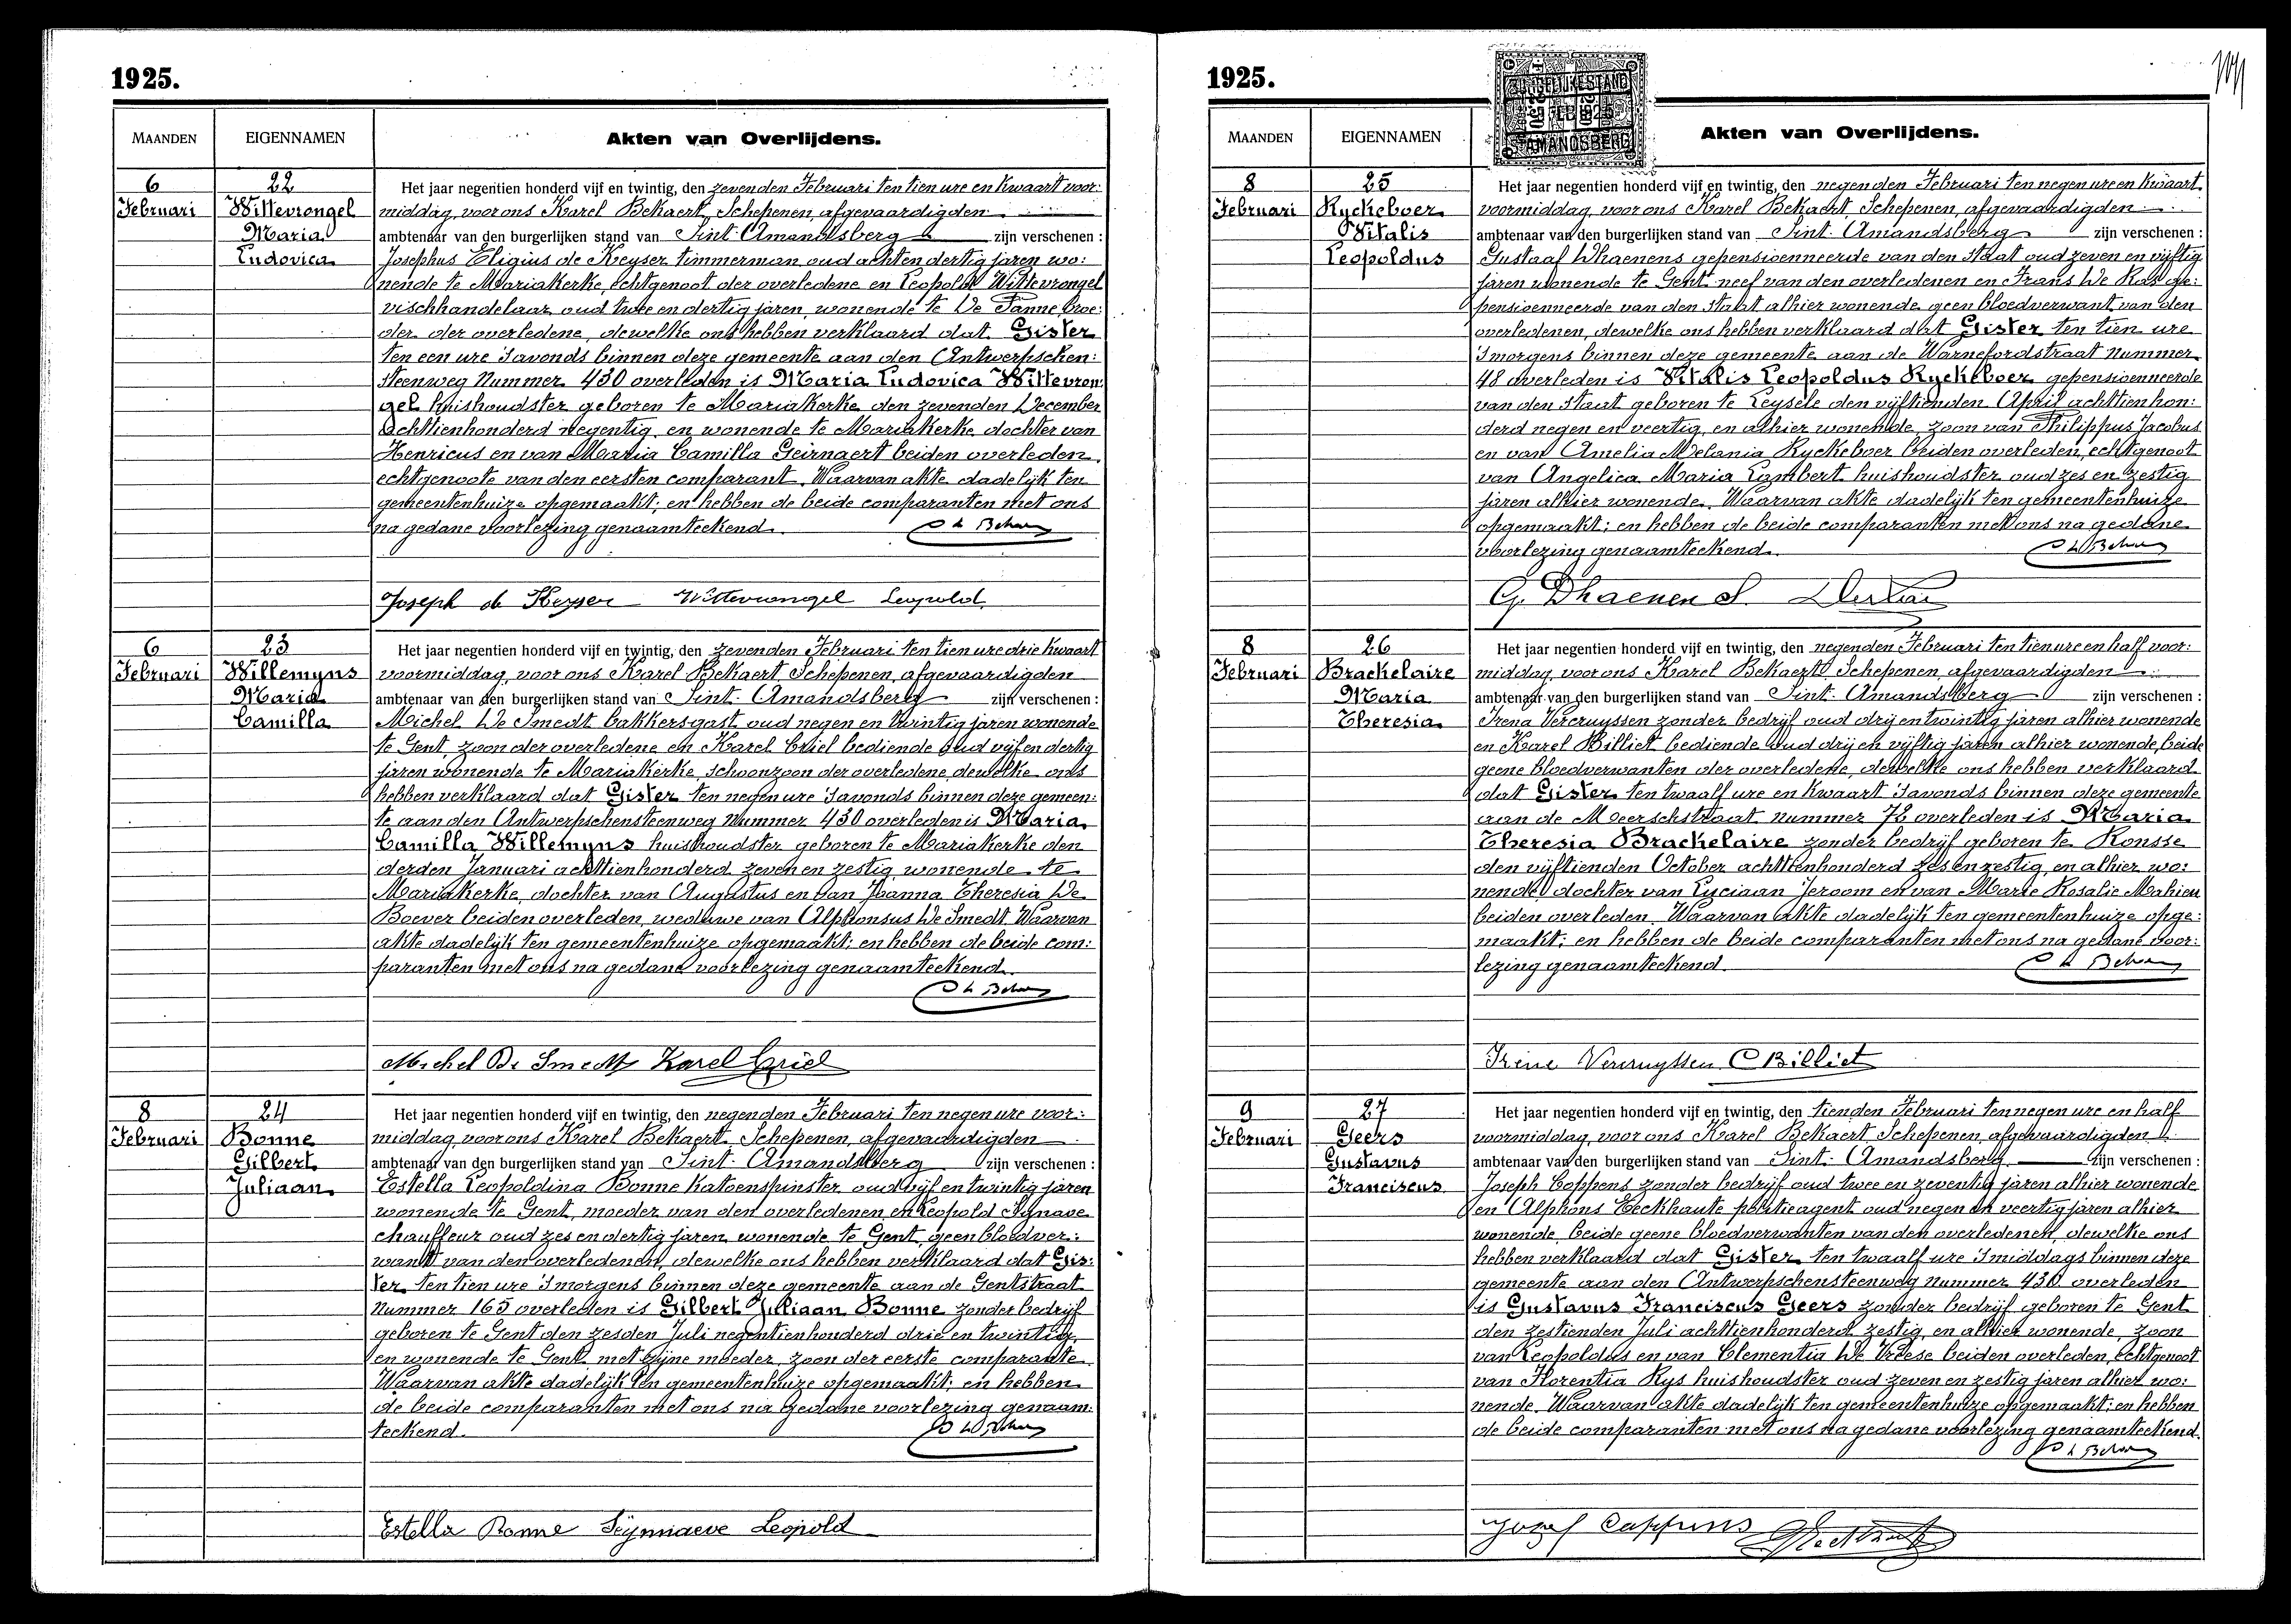 1925.
MAANDEN EIGENNAMEN Akten van Overlijdens.
6 22
Februari Wittevrongel Maria Ludovica
Het jaar negentien honderd vijf en twintig, den zevenden Februari ten tien ure en kwaart voor:
middag, voor ons Karel Bekaert, Schepenen, afgevaardigden
ambtenaar van den burgerlijken stand van Sint-Amandsberg zijn verschenen :
Josephus Eligius de Keyser timmerman oud achten dertig jaren wo:
nende te Mariakerke, echtgenoot der overledene en Leopold Wittevrongel
vischhandelaar oud twee en dertig jaren, wonende te De Panne, broe:
der der overledene, dewelke ons hebben verklaard dat Gister
ten een ure 's avonds binnen deze gemeente aan den Antwerpschen:
steenweg Nummer 430 overleden is Maria Ludovica Wittevron:
gel huishoudster geboren te Mariakerke den zevenden December
achttienhonderd negentig en wonende te Mariakerke dochter van
Henricus en van Maria Camilla Geirnaert beiden overleden,
echtgenoote van den eersten comparant. Waarvan akte dadelijk ten
gemeentenhuize opgemaakt; en hebben de beide comparanten met ons
na gedane voorlezing genaamteekend.
Joseph de Keyser Wittevrongel Leopold
6 23
Februari Willemyns Maria Camilla
Het jaar negentien honderd vijf en twintig, den zevenden Februari ten tien ure drie kwaart
voormiddag, voor ons Karel Bekaert Schepenen, afgevaardigden
ambtenaar van den burgerlijken stand van Sint-Amandsberg zijn verschenen :
Michel De Smedt bakkersgast oud negen en twintig jaren wonende
te Gent, zoon der overledene en Karel Criel bediende oud vijf en dertig
jaren wonende te Mariakerke, schoonzoon der overledene, dewelke ons
hebben verklaard dat Gister ten negen ure 's avonds binnen deze gemeen:
te aan den Antwerpschensteenweg Nummer 430 overleden is Maria
Camilla Willemyns huishoudster geboren te Mariakerke den
derden Januari achttienhonderd zeven en zestig, wonende te
Mariakerke, dochter van Augustus en van Joanna Theresia De
Boever beiden overleden, weduwe van Alphonsus De Smedt. Waarvan
akte dadelijk ten gemeentenhuize opgemaakt; en hebben de beide com:
paranten met ons na gedane voorlezing genaamteekend.
Michel De Smedt Karel Criel
8 24
Februari Bonne Gilbert Juliaan
Het jaar negentien honderd vijf en twintig, den negenden Februari ten negen ure voor:
middag, voor ons Karel Bekaert Schepenen, afgevaardigden
ambtenaar van den burgerlijken stand van Sint-Amandsberg zijn verschenen :
Estella Leopoldina Bonne katoenspinster, oud vijf en twintig jaren
wonende te Gent, moeder van den overledenen, en Leopold Synave
chauffeur oud zes en dertig jaren wonende te Gent, geen bloedver:
want van den overledenen, dewelke ons hebben verklaard dat Gis:
ter ten tien ure 's morgens binnen deze gemeente aan de Gentstraat
Nummer 165 overleden is Gilbert Juliaan Bonne zonder bedrijf
geboren te Gent den zesden Juli negentienhonderd drie en twintig,
en wonende te Gent met zijne moeder, zoon der eerste comparante
Waarvan akte dadelijk ten gemeentenhuize opgemaakt; en hebben
de beide comparanten met ons na gedane voorlezing genaam:
teekend.
Estella Bonne Seynnaeve Leopold
1925.
MAANDEN EIGENNAMEN Akten van Overlijdens.
8 25
Februari Ryckeboer Vitalis Leopoldus
Het jaar negentien honderd vijf en twintig, den negenden Februari ten negen ure en kwaart
voormiddag, voor ons Karel Bekaert Schepenen, afgevaardigden
ambtenaar van den burgerlijken stand van Sint-Amandsberg zijn verschenen :
Gustaaf Dhaenens gepensioenneerde van den Staat oud zeven en vijftig
jaren wonende te Gent, neef van den overledenen en Frans De Ras ge:
pensioenneerde van den Staat alhier wonende geen bloedverwant van den
overledenen, dewelke ons hebben verklaard dat Gister ten tien ure
's morgens binnen deze gemeente aan de Warnefordstraat Nummer
48 overleden is Vitalis Leopoldus Ryckeboer gepensioenneerde
van den Staat geboren te Leysele den vijftienden April achttienhon:
derd negen en veertig, en alhier wonende, zoon van Philippus Jacobus
en van Amelia Melania Ryckeboer beiden overleden, echtgenoot
van Angelica Maria Lambert huishoudster oud zes en zestig
jaren alhier wonende. Waarvan akte dadelijk ten gemeentenhuize
opgemaakt; en hebben de beide comparanten met ons na gedane
voorlezing genaamteekend.
G. Dhaenens
8 26
Februari Brackelaire Maria Theresia
Het jaar negentien honderd vijf en twintig, den negenden Februari ten tien ure en half voor:
middag, voor ons Karel Bekaert Schepenen, afgevaardigden
ambtenaar van den burgerlijken stand van Sint-Amandsberg zijn verschenen :
Irena Vercruyssen zonder bedrijf oud drij en twintig jaren alhier wonende
en Karel Billiet bediende oud drij en vijftig jaren alhier wonende, beide
geene bloedverwanten der overledene, dewelke ons hebben verklaard
dat Gister ten twaalf ure en kwaart 's avonds binnen deze gemeente
aan de Meerschstraat nummer 72 overleden is Maria
Theresia Brackelaire zonder bedrijf geboren te Ronsse
den vijftienden October achttienhonderd zes en zestig, en alhier wo:
nende, dochter van Luciaan Jeroom en van Marie Rosalie Mahieu
beiden overleden. Waarvan akte dadelijk ten gemeentenhuize opge:
maakt; en hebben de beide comparanten met ons na gedane voor:
lezing genaamteekend.
Irène Vercruyssen C Billiet
9 27
Februari Geers Gustavus Franciscus
Het jaar negentien honderd vijf en twintig, den tienden Februari ten negen ure en half
voormiddag, voor ons Karel Bekaert Schepenen, afgevaardigden
ambtenaar van den burgerlijken stand van Sint-Amandsberg zijn verschenen :
Joseph Coppens zonder bedrijf oud twee en zeventig jaren alhier wonende
en Alphons Eeckhaute politieagent oud negen en veertig jaren alhier
wonende, beide geene bloedverwanten van den overledenen, dewelke ons
hebben verklaard dat Gister ten twaalf ure 's middags binnen deze
gemeente aan den Antwerpschensteenweg nummer 430 overleden
is Gustavus Franciscus Geers zonder bedrijf geboren te Gent
den zestienden Juli achttienhonderd zestig, en alhier wonende, zoon
van Leopoldus en van Clementia De Vreese beiden overleden, echtgenoot
van Florentia Rys huishoudster oud zeven en zestig jaren alhier wo:
nende. Waarvan akte dadelijk ten gemeentenhuize opgemaakt; en hebben
de beide comparanten met ons na gedane voorlezing genaamteekend.
Jozef Coppens